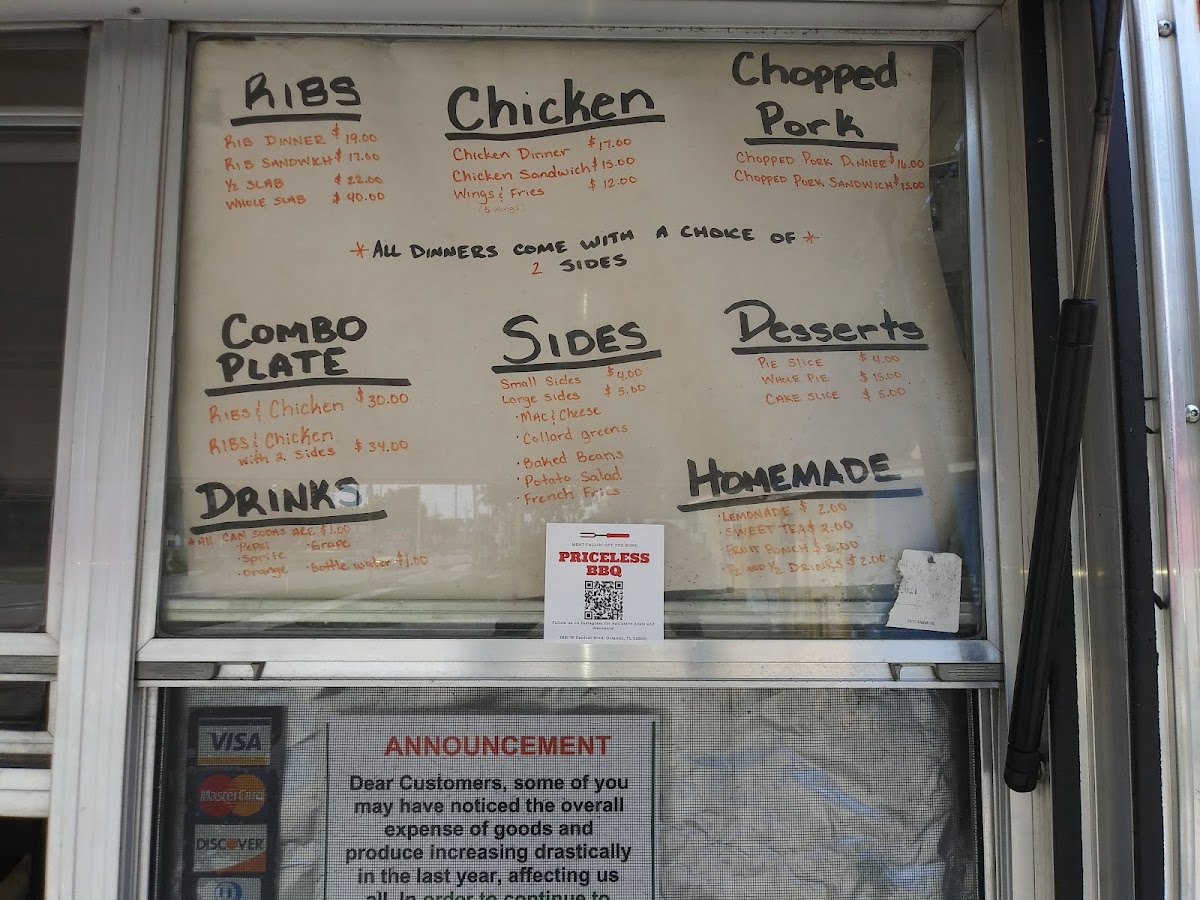 RIBS
RIB DINNER $19.00
RIB SANDWICH $17.00
1/2 SLAB $22.00
WHOLE SLAB $40.00
Chicken
Chicken Dinner $17.00
Chicken Sandwich $15.00
Wings & Fries $12.00
(5 wings)
Chopped
Pork
CHOPPED PORK DINNER $16.00
CHOPPED PORK SANDWICH $15.00
*ALL DINNERS COME WITH A CHOICE OF*
2 SIDES
COMBO
PLATE
RIBS & Chicken $30.00
RIBS & Chicken
with 2 sides $34.00
SIDES
Small Sides $4.00
Large Sides $5.00
·MAC & Cheese
·Collard greens
·Baked Beans
·Potato Salad
·French Fries
Desserts
PIE SLICE $4.00
WHOLE PIE $15.00
CAKE SLICE $5.00
DRINKS
*ALL CAN SODAS ARE $1.00
·Pepsi ·Grape
·Sprite
·Orange ·Bottle water $1.00
HOMEMADE
·LEMONADE $2.00
·SWEET TEA $2.00
·FRUIT PUNCH $2.00
·1/2 AND 1/2 DRINKS $2.00
MEAT FALLIN' OFF THE BONE
PRICELESS
BBQ
Follow us on Instagram for exclusive deals and
discounts!
W Central Blvd, Orlando, FL
2021
VISA
MasterCard
DISCOVER
ANNOUNCEMENT
Dear Customers, some of you
may have noticed the overall
expense of goods and
produce increasing drastically
in the last year, affecting us
all. In order to continue to